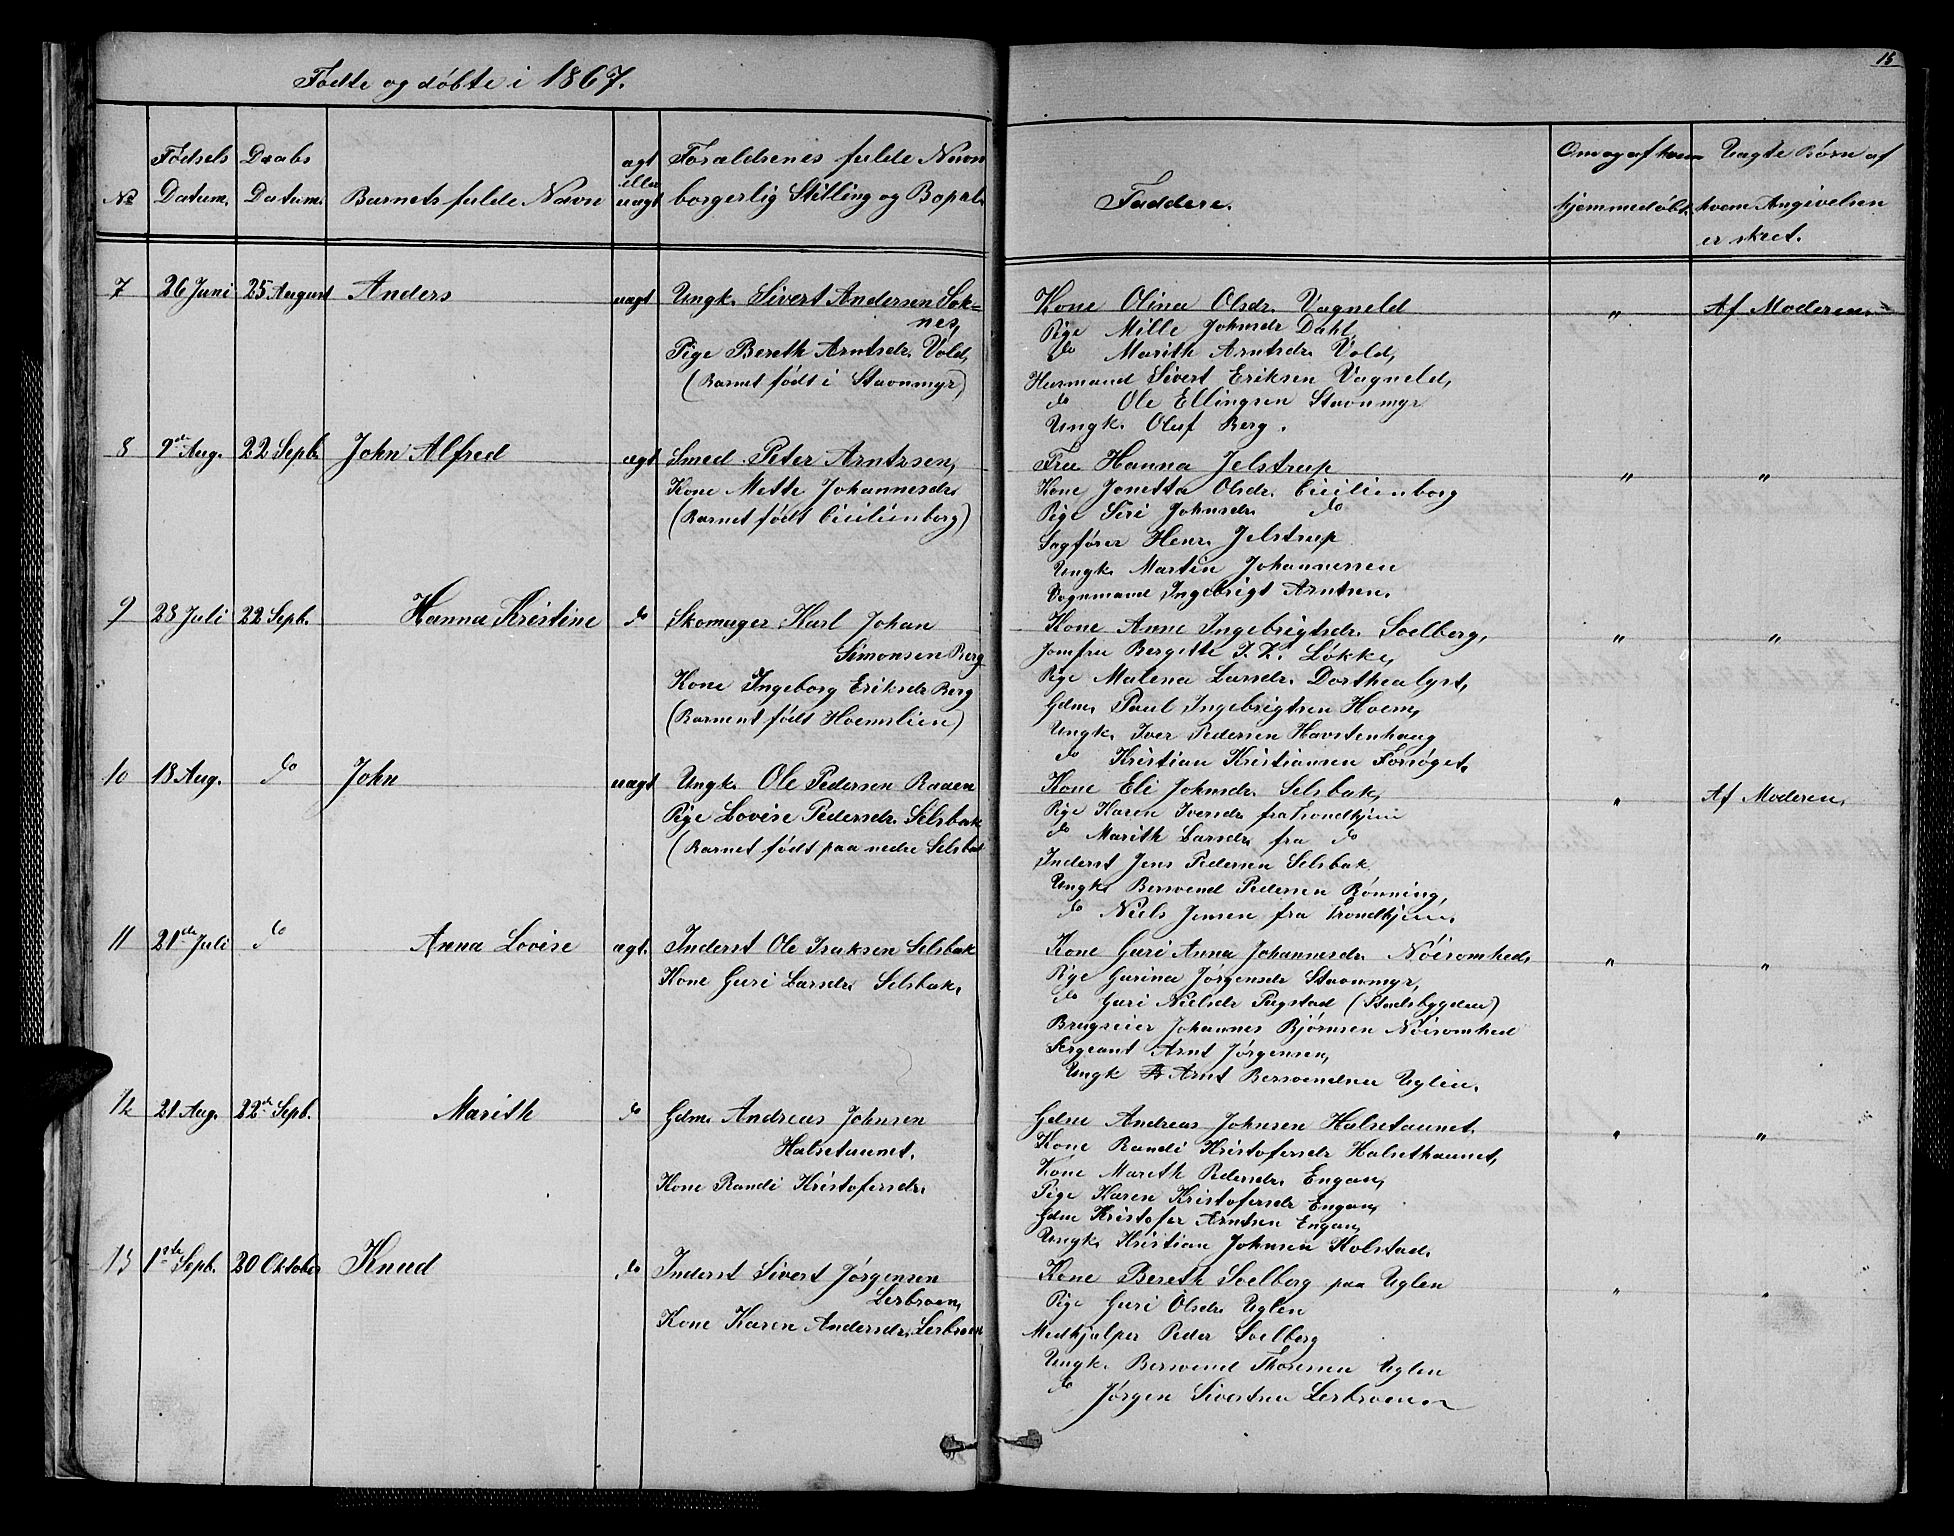 15
Fødte og døbte i 1867.
No
Fødsels Datum.
Daabs Datum.
Barnets fulde Navn
ægt eller uægt
Forældrenes fulde Navn borgerlig Stilling og Bopæl.
Faddere.
Om og af hvem hjemmedøbt.
Uægte Børn af hvem Angivelsen er skeet.
7 26 Juni 25 August Anders uægt Ungk. Sivert Andersen Sok=
nes,
Pige Bereth Arntsdr. Vold,
(Barnet født i Stavnmyr)
Kone Olina Olsdr. Vagneld " Af Moderen.
Pige Mille Johnsdr Dahl,
do Marith Arntsdr. Vold,
Husmand Sivert Eriksen Vagneld,
do Ole Ellingsen Stavnmyr
Ungk. Oluf Berg.
8 9de Aug. 22 Sepb. John Alfred ægt Smed Peter Arntzsen,
Kone Mette Johannesdr.
(Barnet født Cicilienborg)
Frue Hanna Jelstrup " "
Kone Jonetta Olsdr. Cicilienborg
Pige Siri Johnsdr. do
Sagfører Henr. Jelstrup
Ungk. Martin Johannessen
Vognmand Ingebrigt Arntsen.
9 28 Juli 22 Sepb. Hanna Kristine do Skomager Karl Johan
Simonsen Berg
Kone Ingeborg Eriksdr Berg
(Barnent født Hoemslien)
Kone Anne Ingebrigtsdr. Soelberg, " "
Jomfru Bergitte Løkke,
Pige Malena Larsdr. Dorthealyst,
Gdm. Paul Ingebrigtsen Hoem,
Ungk. Iver Pedersen Havstenhaug
do Kristian Kristiansen Forsøget.
10 18 Aug. do John uægt Ungk. Ole Pedersen Raaen
Pige Lovise Pedersdr. Selsbak
(Barnet født paa nedre Selsbak
Kone Eli Johnsdr. Selsbak, " Af Moderen.
Pige Karen Iversdr fra Trondhjem
do Marith Larsdr. fra do
Inderst Jens Pedersen Selsbak
Ungk. Bersvend Pedersen Rønning,
do Niels Jensen fra Trondhjem.
11 21de Juli do Anna Lovise ægt. Inderst Ole Isaksen Selsbak
Kone Guri Larsdr. Selsbak.
Kone Guri Anna Johannesdr. Nöisomhed, " "
Pige Gurina Jørgensdr Stavnmyr,
do Guri Nielsdr. (Stadsbygden)
Brugseier Johannes Bjørnsen Nöisomhed
Sergeant Arnt Jørgensen,
Ungk Arnt Bersvendsen Uglen.
12 21 Aug. 22de Sepb. Marith do Gdm. Andreas Johnsen
Halsetaunet.
Kone Randi Kristofersdr.
Gdm Andreas Johnsen Halsetaunet. " "
Kone Randi Kristofersdr Halsethaunet,
Kone Marith Pedersdr. Engan,
Pige Karen Kristofersdr Engan,
Gdm Kristofer Arntsen Engan,
Ungk. Kristian Johnsen Holstad.
13 1ste Sepb. 20 Oktober Knud do Inderst Sivert Jørgensen
Lerbroen,
Kone Karen Andersdr. Lerbroen
Kone Bereth Soelberg paa Uglen " "
Pige Guri Olsdr. Uglen
Medhjælper Peder Soelberg
Ungk. Bersvend Thoresen Uglen
do Jørgen Sivertsen Lerbroen